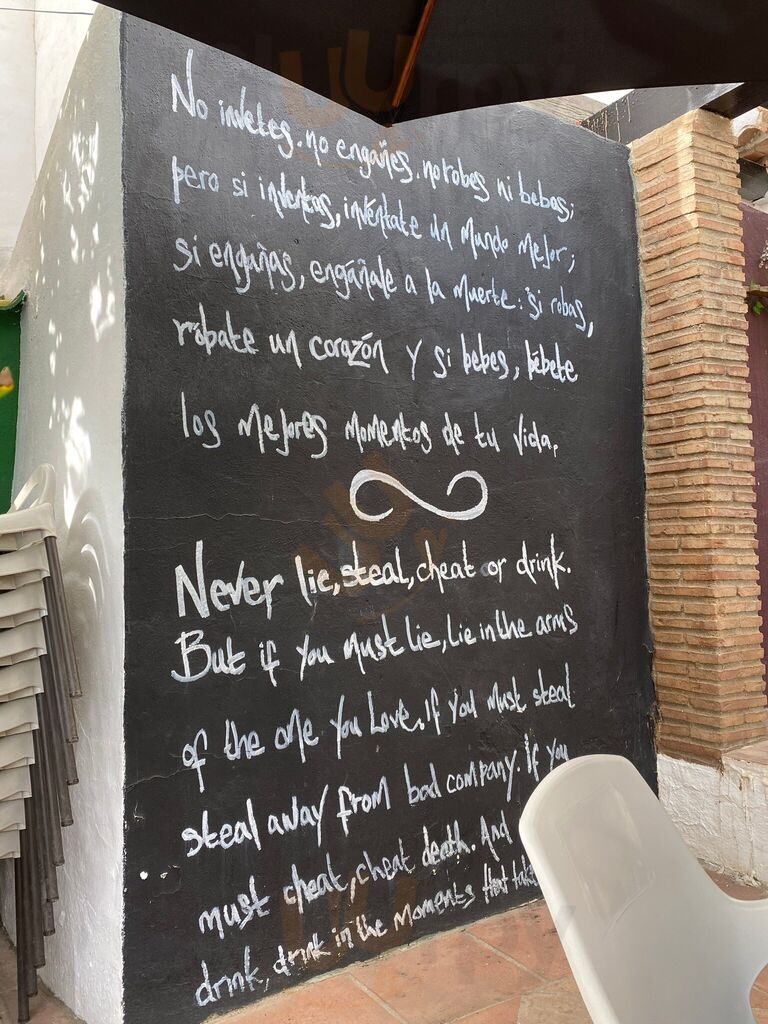 No invetes, no engañes, no robes ni bebas;
pero si inventas, invéntate un mundo mejor;
si engañas, engáñale a la muerte; si robas,
róbate un corazón y si bebes, bébete
los mejores momentos de tu vida.
Never lie, steal, cheat or drink.
But if you must lie, lie in the arms
of the one you love. If you must steal
steal away from bad company. If you
must cheat, cheat death. And
drink, drink in the moments that